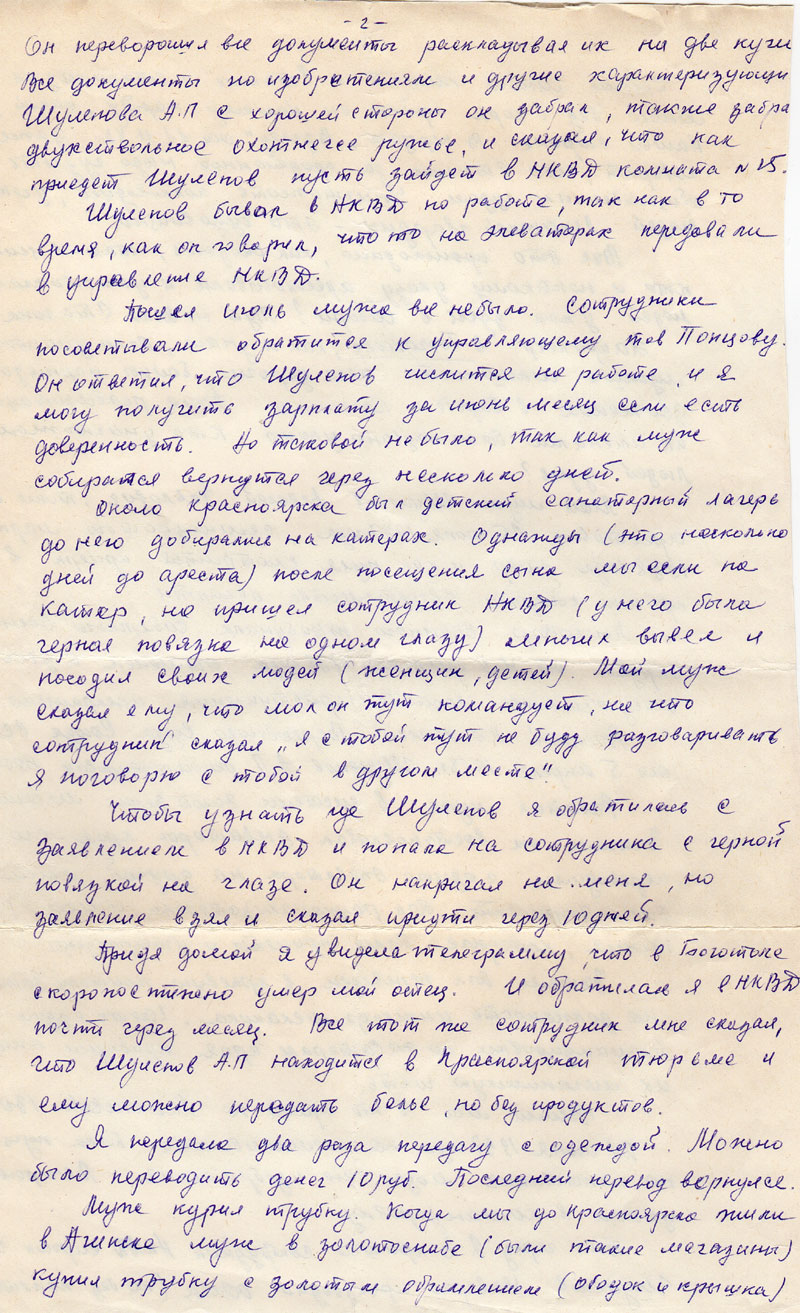 - 2 -
Он переворошил все документы раскладывая их на две кучи
Все документы по изобретениям и другие характеризующи
Шулепова А.П с хорошей стороны он забрал, также забра
двухствольное охотнечее ружье, и сказал, что как
приедет Шулепов пусть зайдет в НКВД комната N 15.
Шулепов бывал в НКВД по работе, так как в то
время, как он говорил, что то на элеваторах передавали
в управление НКВД.
Пошел июль мужа все небыло. Сотрудники
посоветывали обратится к управляющему тов Понцову.
Он ответил, что Шулепов числится на работе и я
могу получить зарплату за июнь месяц если есть
доверенность. Но таковой небыло, так как муж
собирался вернутся через несколько дней.
Около Красноярска был детский санаторный лагерь
до него добирались на катерах. Однажды (это насколько
дней до ареста) после посещения сына мы сели на
катер, но пришел сотрудник НКВД (у него была
черная повязка на одном глазу) многих вывел и
посадил своих людей (женщин, детей). Мой муж
сказал ему, что мол он тут командует, на что
сотрудник сказал „я с тобой тут не буду разговаривать
я поговорю с тобой в другом месте"
Чтобы узнать где Шулепов я обратилась с
заявлением в НКВД и попала на сотрудника с черной
повязкой на глазе. Он накричал на меня, но
заявление взял и сказал придти через 10 дней.
Придя домой я увидела телеграмму что в Боготоле
скоропостижно умер мой отец. И обратилась я в НКВД
почти через месяц. Все тот же сотрудник мне сказал,
что Шулепов А.П находится в Красноярской тюрьме и
ему можно передать белье, но без продуктов.
Я передала два раза передачу с одеждой. Можно
было переводить денег 10 руб. Последний перевод вернулся.
Муж курил трубку. Когда мы до Красноярска жили
в Ачинске муж в золотоснабе (были такие магазины)
купил трубку с золотым обрамлением (ободок и крышка)